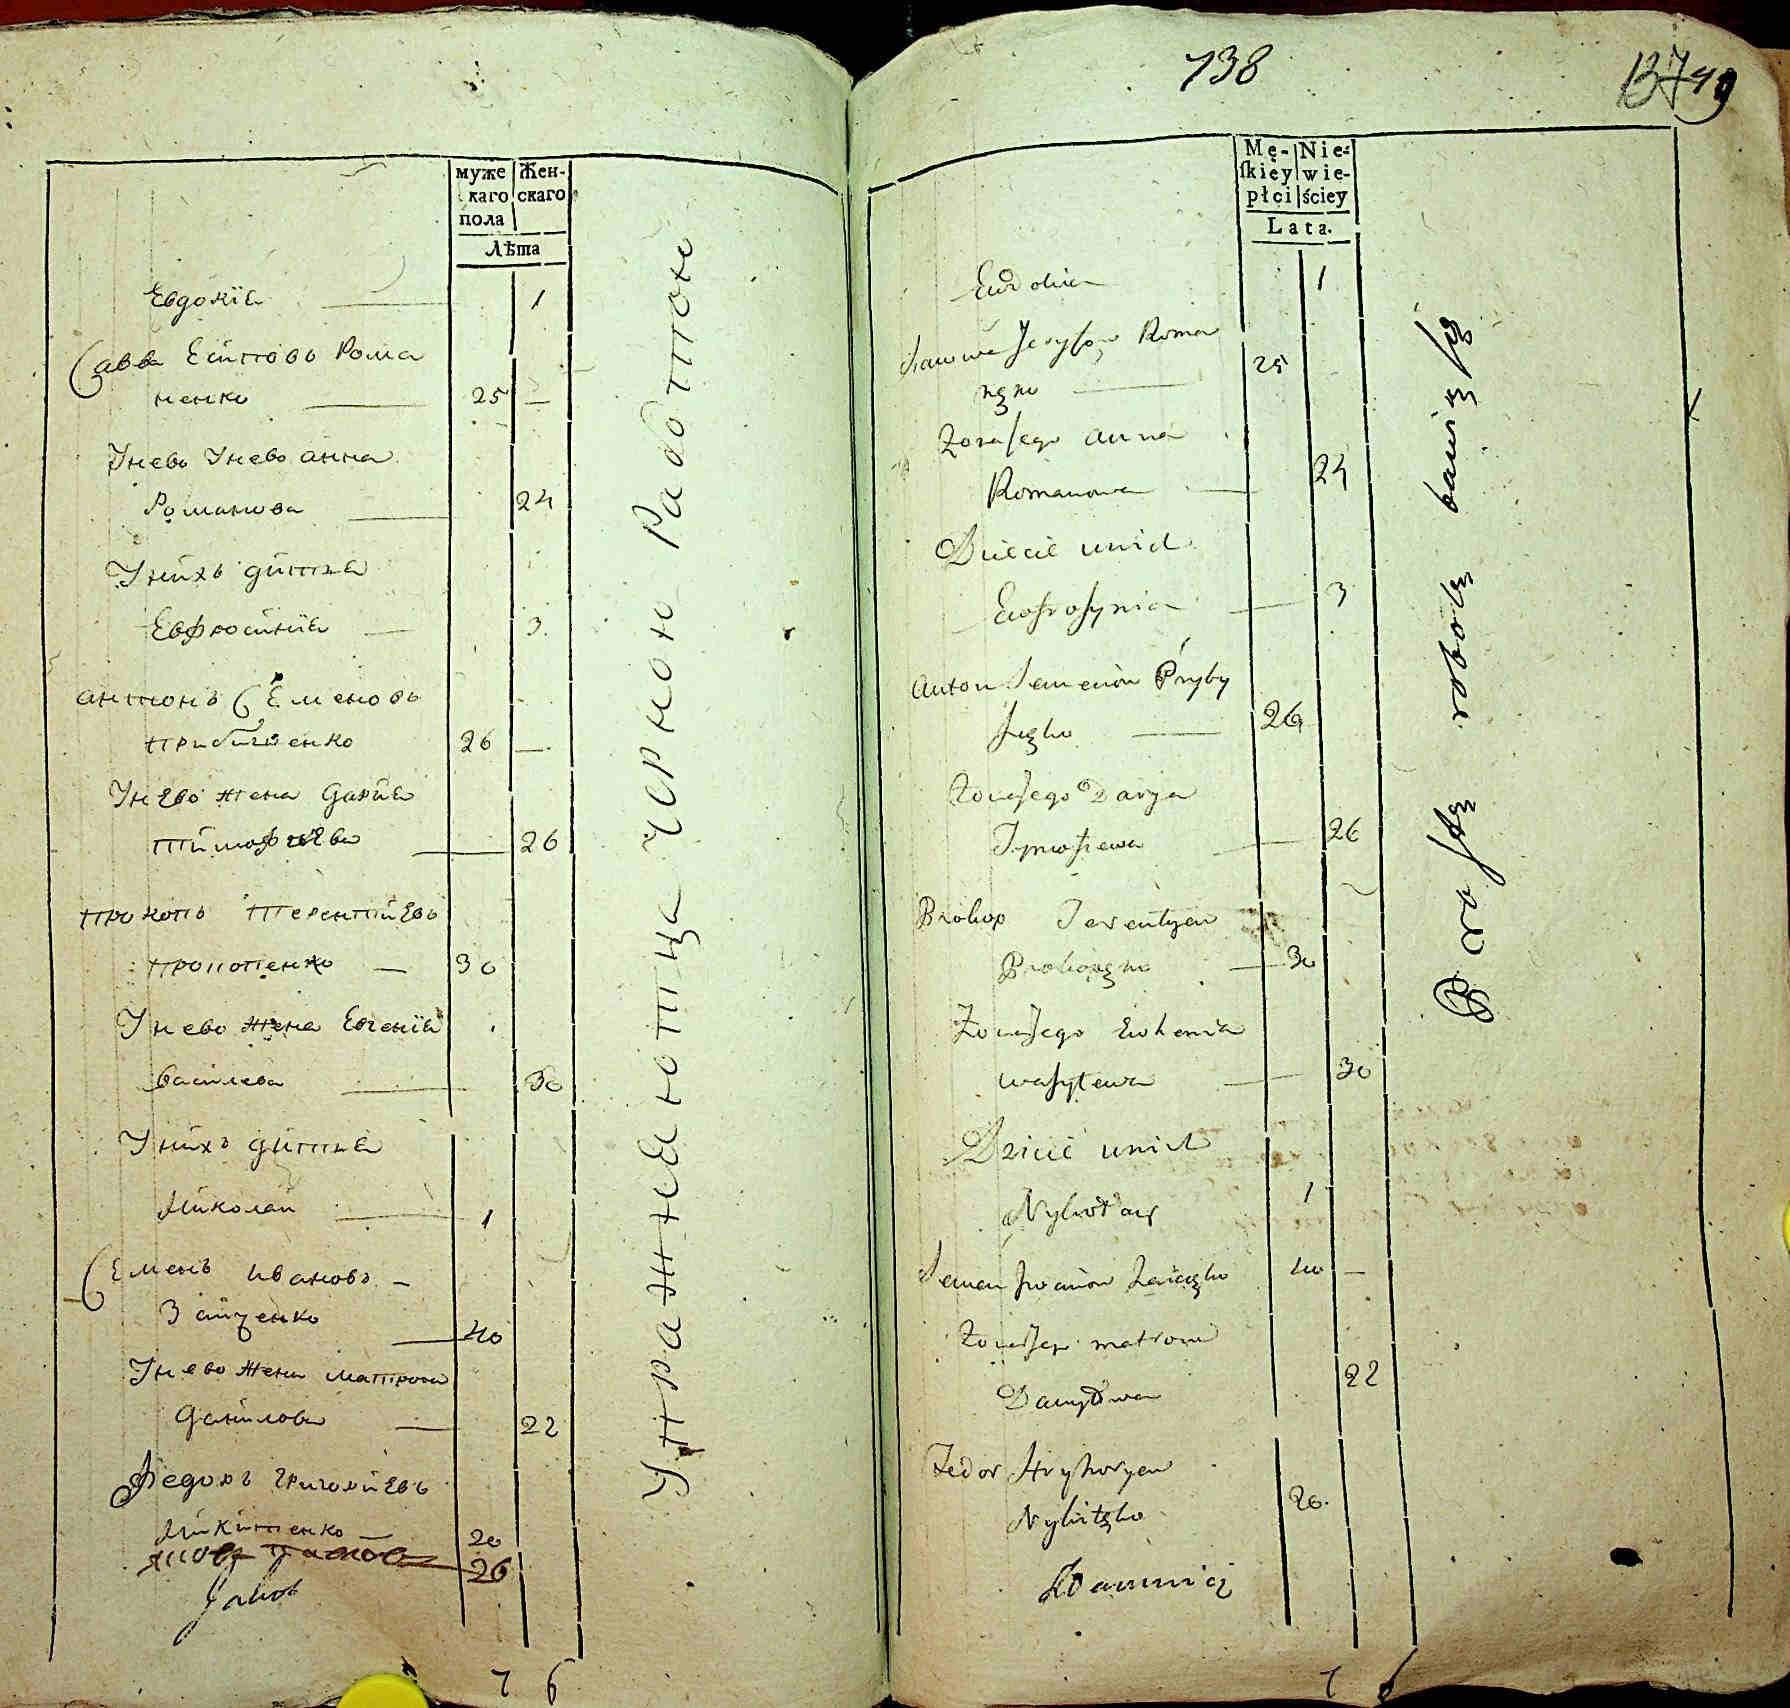 муже
каго
пола
Жен-
скаго
Лѣта
Евдокїя 1
Савва Есиповъ Рома
ненко 25 —
Унево Унево анна
Романова 24
Унихъ дитяа
Евфросинїя 3
антонъ Семеновъ
Прибишенко 26 —
Унево жена Дарїя
Тимофѣева 26
Прокопъ Терентїевъ
Прокопенко 30
Унево жена Евгенїя
Василева 30
Унихъ дитяа
Миколай 1
Семенъ Ивановъ
Зайченко 40
Унево жена Матрона
Данилова 22
Федоръ Григорїевъ
Микитенко 20
26
Jakob
7 6
Упражняютца черною работою
138
137 49
Mę-
skiey
płci
Nie-
wie-
ściey
Lata.
Eudokia 1
Sawwa Jesypow Roma
nęko 25
Żona Jego anna
Romanowa 24
Dziecie u nich
Eufrosynia 3
Anton Semenow Pryby
szęko 26
Żona Jego Darya
Tymofiewa 26
Prokop Terentyew
Prokopęko 30
Żona Jego Euhenia
Wasylewa 30
Dziecie u nich
Mykołay 1
Semen Iwanow Zaiaczko 40 —
Żona Jego matrona
Danyłowa 22
Fedor Hryhoryew
Mykitęko 20
7 6
Prostą robotą bawią się